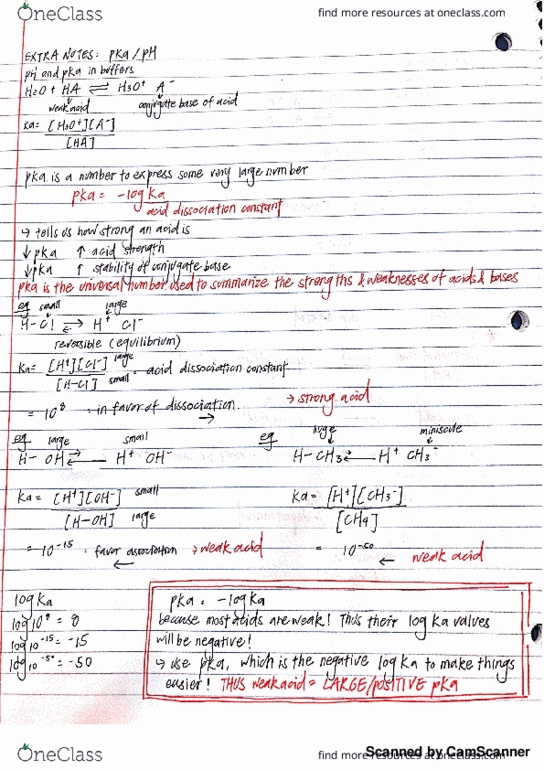 OneClass find more resources at oneclass.com
EXTRA NOTES: pKa / pH
pH and pKa in buffers
H2O + HA ⇌ H3O+ A-
weak acid conjugate base of acid
Ka = [H3O+][A-]
[HA]
pKa is a number to express some very large number
pKa = -log Ka
acid dissociation constant
→ tells us how strong an acid is
↓ pKa ↑ acid strength
↓ pKa ↑ stability of conjugate base
pKa is the universal number used to summarize the strengths & weaknesses of acids & bases
eg small large
H-Cl ⇌ H+ Cl-
reversible (equilibrium)
Ka = [H+][Cl-] large
[H-Cl] small = acid dissociation constant
= 10^8 : in favor of dissociation. → strong acid
→
eg large small
H-OH ⇌ H+ OH-
eg huge miniscule
H-CH3 ⇌ H+ CH3-
Ka = [H+][OH-] small
[H-OH] large
= 10^-15 : favor association → weak acid
←
Ka = [H+][CH3-]
[CH4]
= 10^-50 ← weak acid
log Ka
log 10^8 = 8
log 10^-15 = -15
log 10^-50 = -50
pKa = -log Ka
because most acids are weak! Thus their log Ka values
will be negative!
↳ use pKa, which is the negative log Ka to make things
easier! THUS weak acid = LARGE/POSITIVE pKa
OneClass find more resources at oneclass.com
Scanned by CamScanner